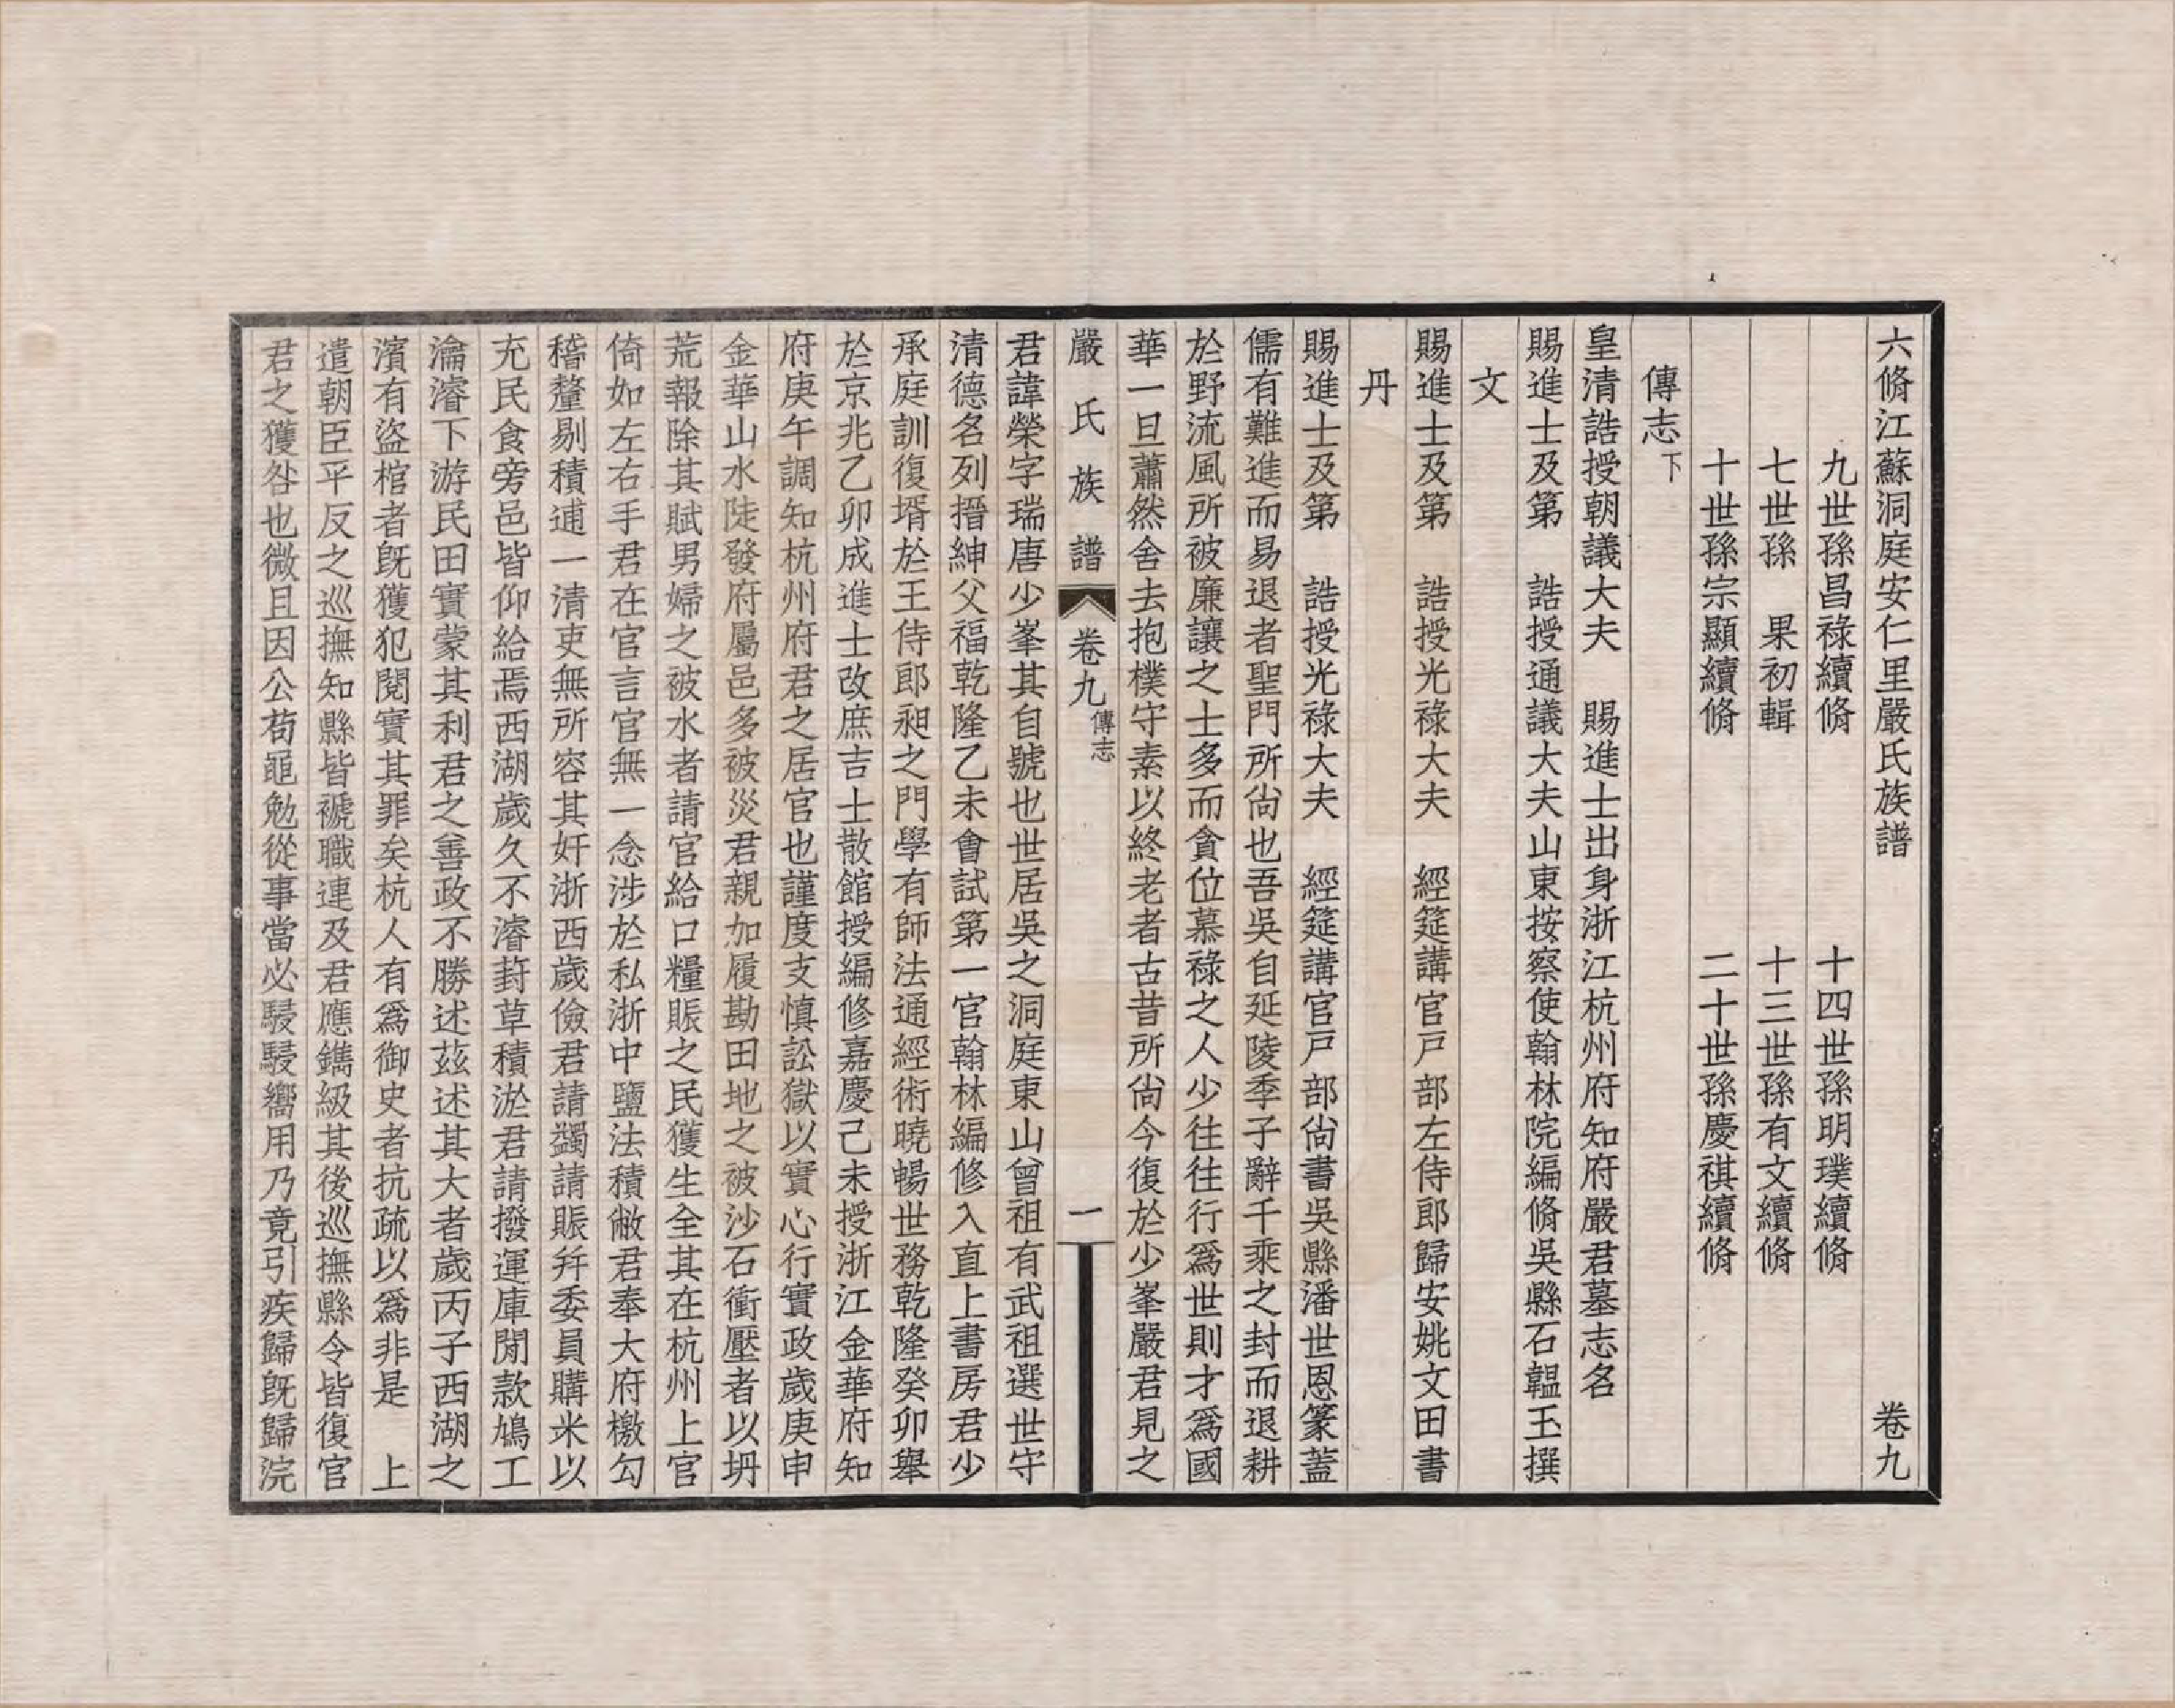 六脩江蘇洞庭安仁里嚴氏族譜　卷九
九世孫昌祿續脩　十四世孫明璞續脩
七世孫　果初輯　十三世孫有文續脩
十世孫宗顯續脩　二十世孫慶祺續脩
傳志下
皇清誥授朝議大夫　賜進士出身浙江杭州府知府嚴君墓志名
賜進士及第　誥授通議大夫山東按察使翰林院編脩吳縣石韞玉撰
文
賜進士及第　誥授光祿大夫　經筵講官戶部左侍郎歸安姚文田書
丹
賜進士及第　誥授光祿大夫　經筵講官戶部尙書吳縣潘世恩篆蓋
儒有難進而易退者聖門所尙也吾吳自延陵季子辭千乘之封而退耕
於野流風所被廉讓之士多而貪位慕祿之人少往往行爲世則才爲國
華一旦蕭然舍去抱樸守素以終老者古昔所尙今復於少峯嚴君見之
嚴氏族譜　卷九傳志　一
君諱榮字瑞唐少峯其自號也世居吳之洞庭東山曾祖有武祖選世守
清德名列搢紳父福乾隆乙未會試第一官翰林編修入直上書房君少
承庭訓復壻於王侍郎昶之門學有師法通經術曉暢世務乾隆癸卯舉
於京兆乙卯成進士改庶吉士散館授編修嘉慶己未授浙江金華府知
府庚午調知杭州府君之居官也謹度支慎訟獄以實心行實政歲庚申
金華山水陡發府屬邑多被災君親加履勘田地之被沙石衝壓者以坍
荒報除其賦男婦之被水者請官給口糧賑之民獲生全其在杭州上官
倚如左右手君在官言官無一念涉於私浙中鹽法積敝君奉大府檄勾
稽釐剔積逋一清吏無所容其奸浙西歲儉君請蠲請賑幷委員購米以
充民食旁邑皆仰給焉西湖歲久不濬葑草積淤君請撥運庫閒款鳩工
瀹濬下游民田實蒙其利君之善政不勝述茲述其大者歲丙子西湖之
濱有盜棺者旣獲犯閱實其罪矣杭人有爲御史者抗疏以爲非是　上
遣朝臣平反之巡撫知縣皆褫職連及君應鐫級其後巡撫縣令皆復官
君之獲咎也微且因公苟黽勉從事當必駸駸嚮用乃竟引疾歸旣歸浣